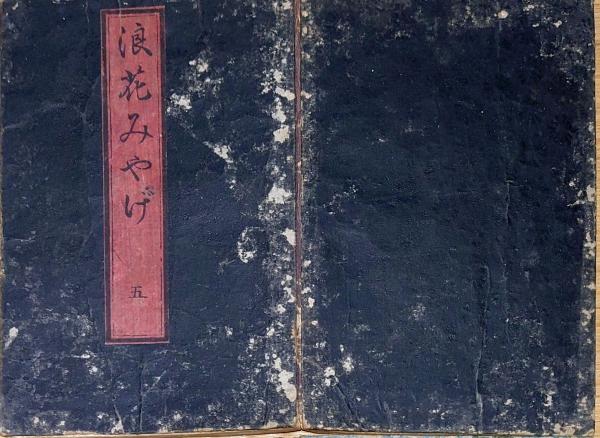 浪花みやげ
五